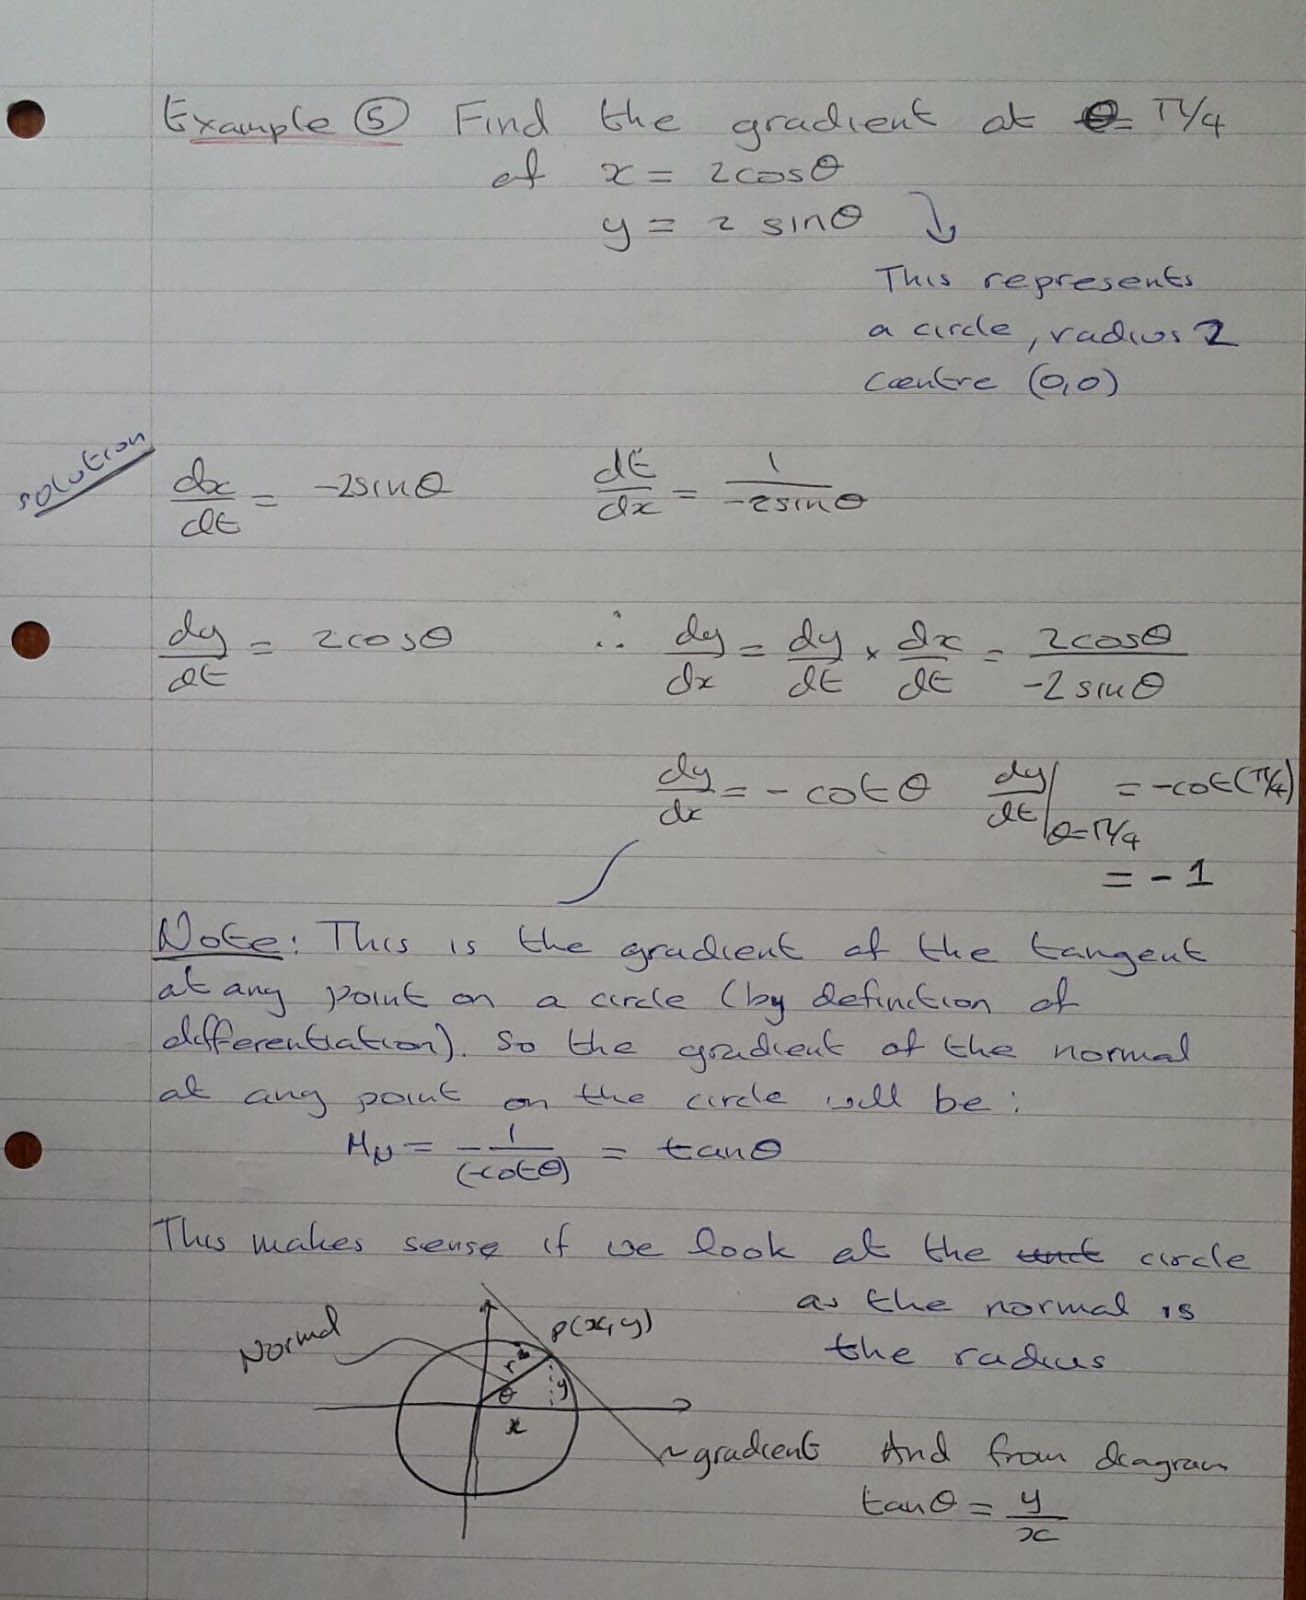 Example ⑤ Find the gradient at θ = π/4
of x = 2cosθ
y = 2 sinθ
This represents
a circle, radius 2
Centre (0,0)
solution
dx/dt = -2sinθ dt/dx = 1/-2sinθ
dy/dt = 2cosθ ∴ dy/dx = dy/dt × dx/dt = 2cosθ/-2sinθ
dy/dx = - cotθ dy/dt|θ=π/4 = -cot(π/4)
= -1
Note: This is the gradient of the tangent
at any point on a circle (by definition of
differentiation). So the gradient of the normal
at any point on the circle will be:
M_N = -1/(-cotθ) = tanθ
This makes sense if we look at the unit circle
as the normal is
the radius
Normal
P(x,y)
r
θ
y
x
gradient And from diagram
tanθ = y/x